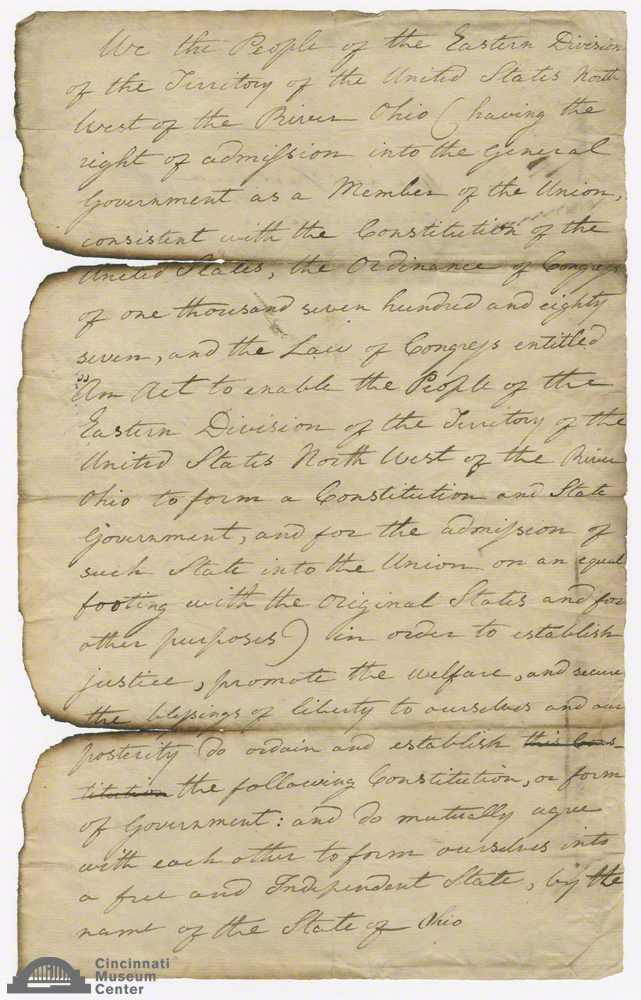 We the People of the Eastern Division
of the Territory of the United States North
West of the River Ohio (having the
right of admission into the General
Government as a Member of the Union,
consistent with the Constitution of the
United States, the Ordinance of Congress
of one thousand seven hundred and eighty
seven, and the Law of Congress entitled
"An Act to enable the People of the
Eastern Division of the Territory of the
United States North West of the River
Ohio to form a Constitution and State
Government, and for the admission of
such State into the Union on an equal
footing with the original States and for
other purposes) in order to establish
justice, promote the welfare, and secure
the blessings of liberty to ourselves and our
posterity do ordain and establish this Cons-
titution the following Constitution, or form
of Government: and do mutually agree
with each other to form ourselves into
a free and Independent State, by the
name of the State of Ohio
Cincinnati
Museum
Center